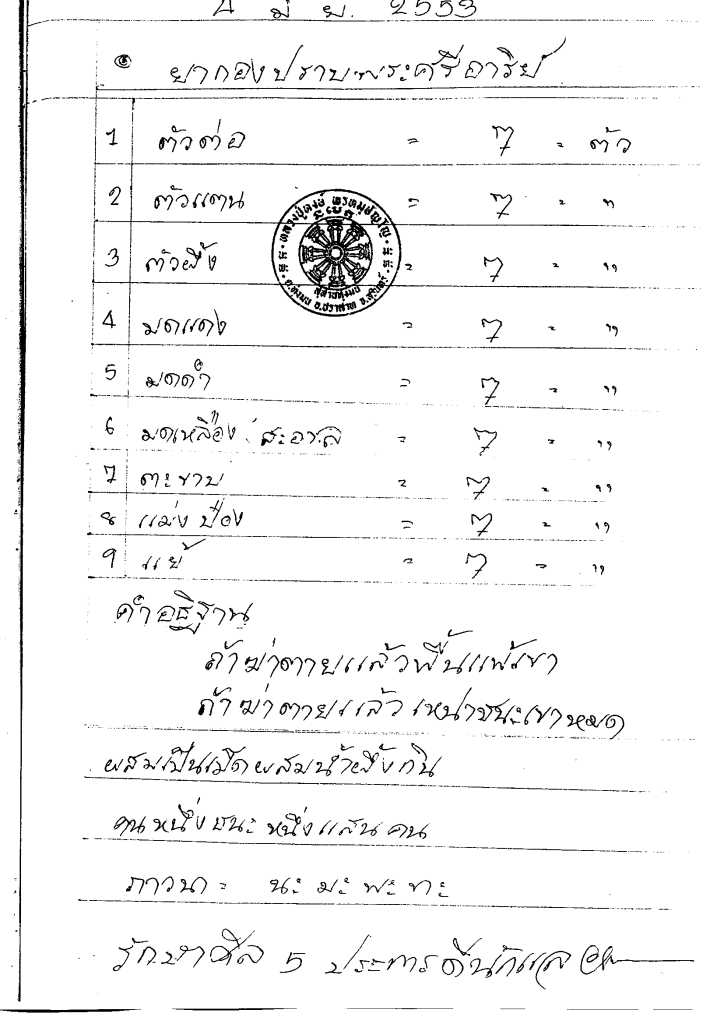 ๔ มิ ย. 2553
๏ ยากองปราบพระศรีอาริย์
1 ตัวต่อ = 7 = ตัว
2 ตัวแตน = 7 = "
3 ตัวผึ้ง = 7 = "
4 มดแดง = 7 = "
5 มดดำ = 7 = "
6 มดเหลือง = 7 = "
7 ตะขาบ = 7 = "
8 แม่งป่อง = 7 = "
9 แย้ = 7 = "
คำอธิฐาน
ถ้าฆ่าตายแล้วฟื้นแพ้เขา
ถ้าฆ่าตายแล้วเหน่าชนะเขาหมด
ผสมเป็นเม็ดผสมน้ำผึ้งกิน
คนหนึ่งชนะหนึ่งแสนคน
ภาวนา = นะ มะ พะ ทะ
รักษาศีล 5 ประการดีนักแล
ต.ทุ่งมน อ.ปราสาท จ.สุรินทร์